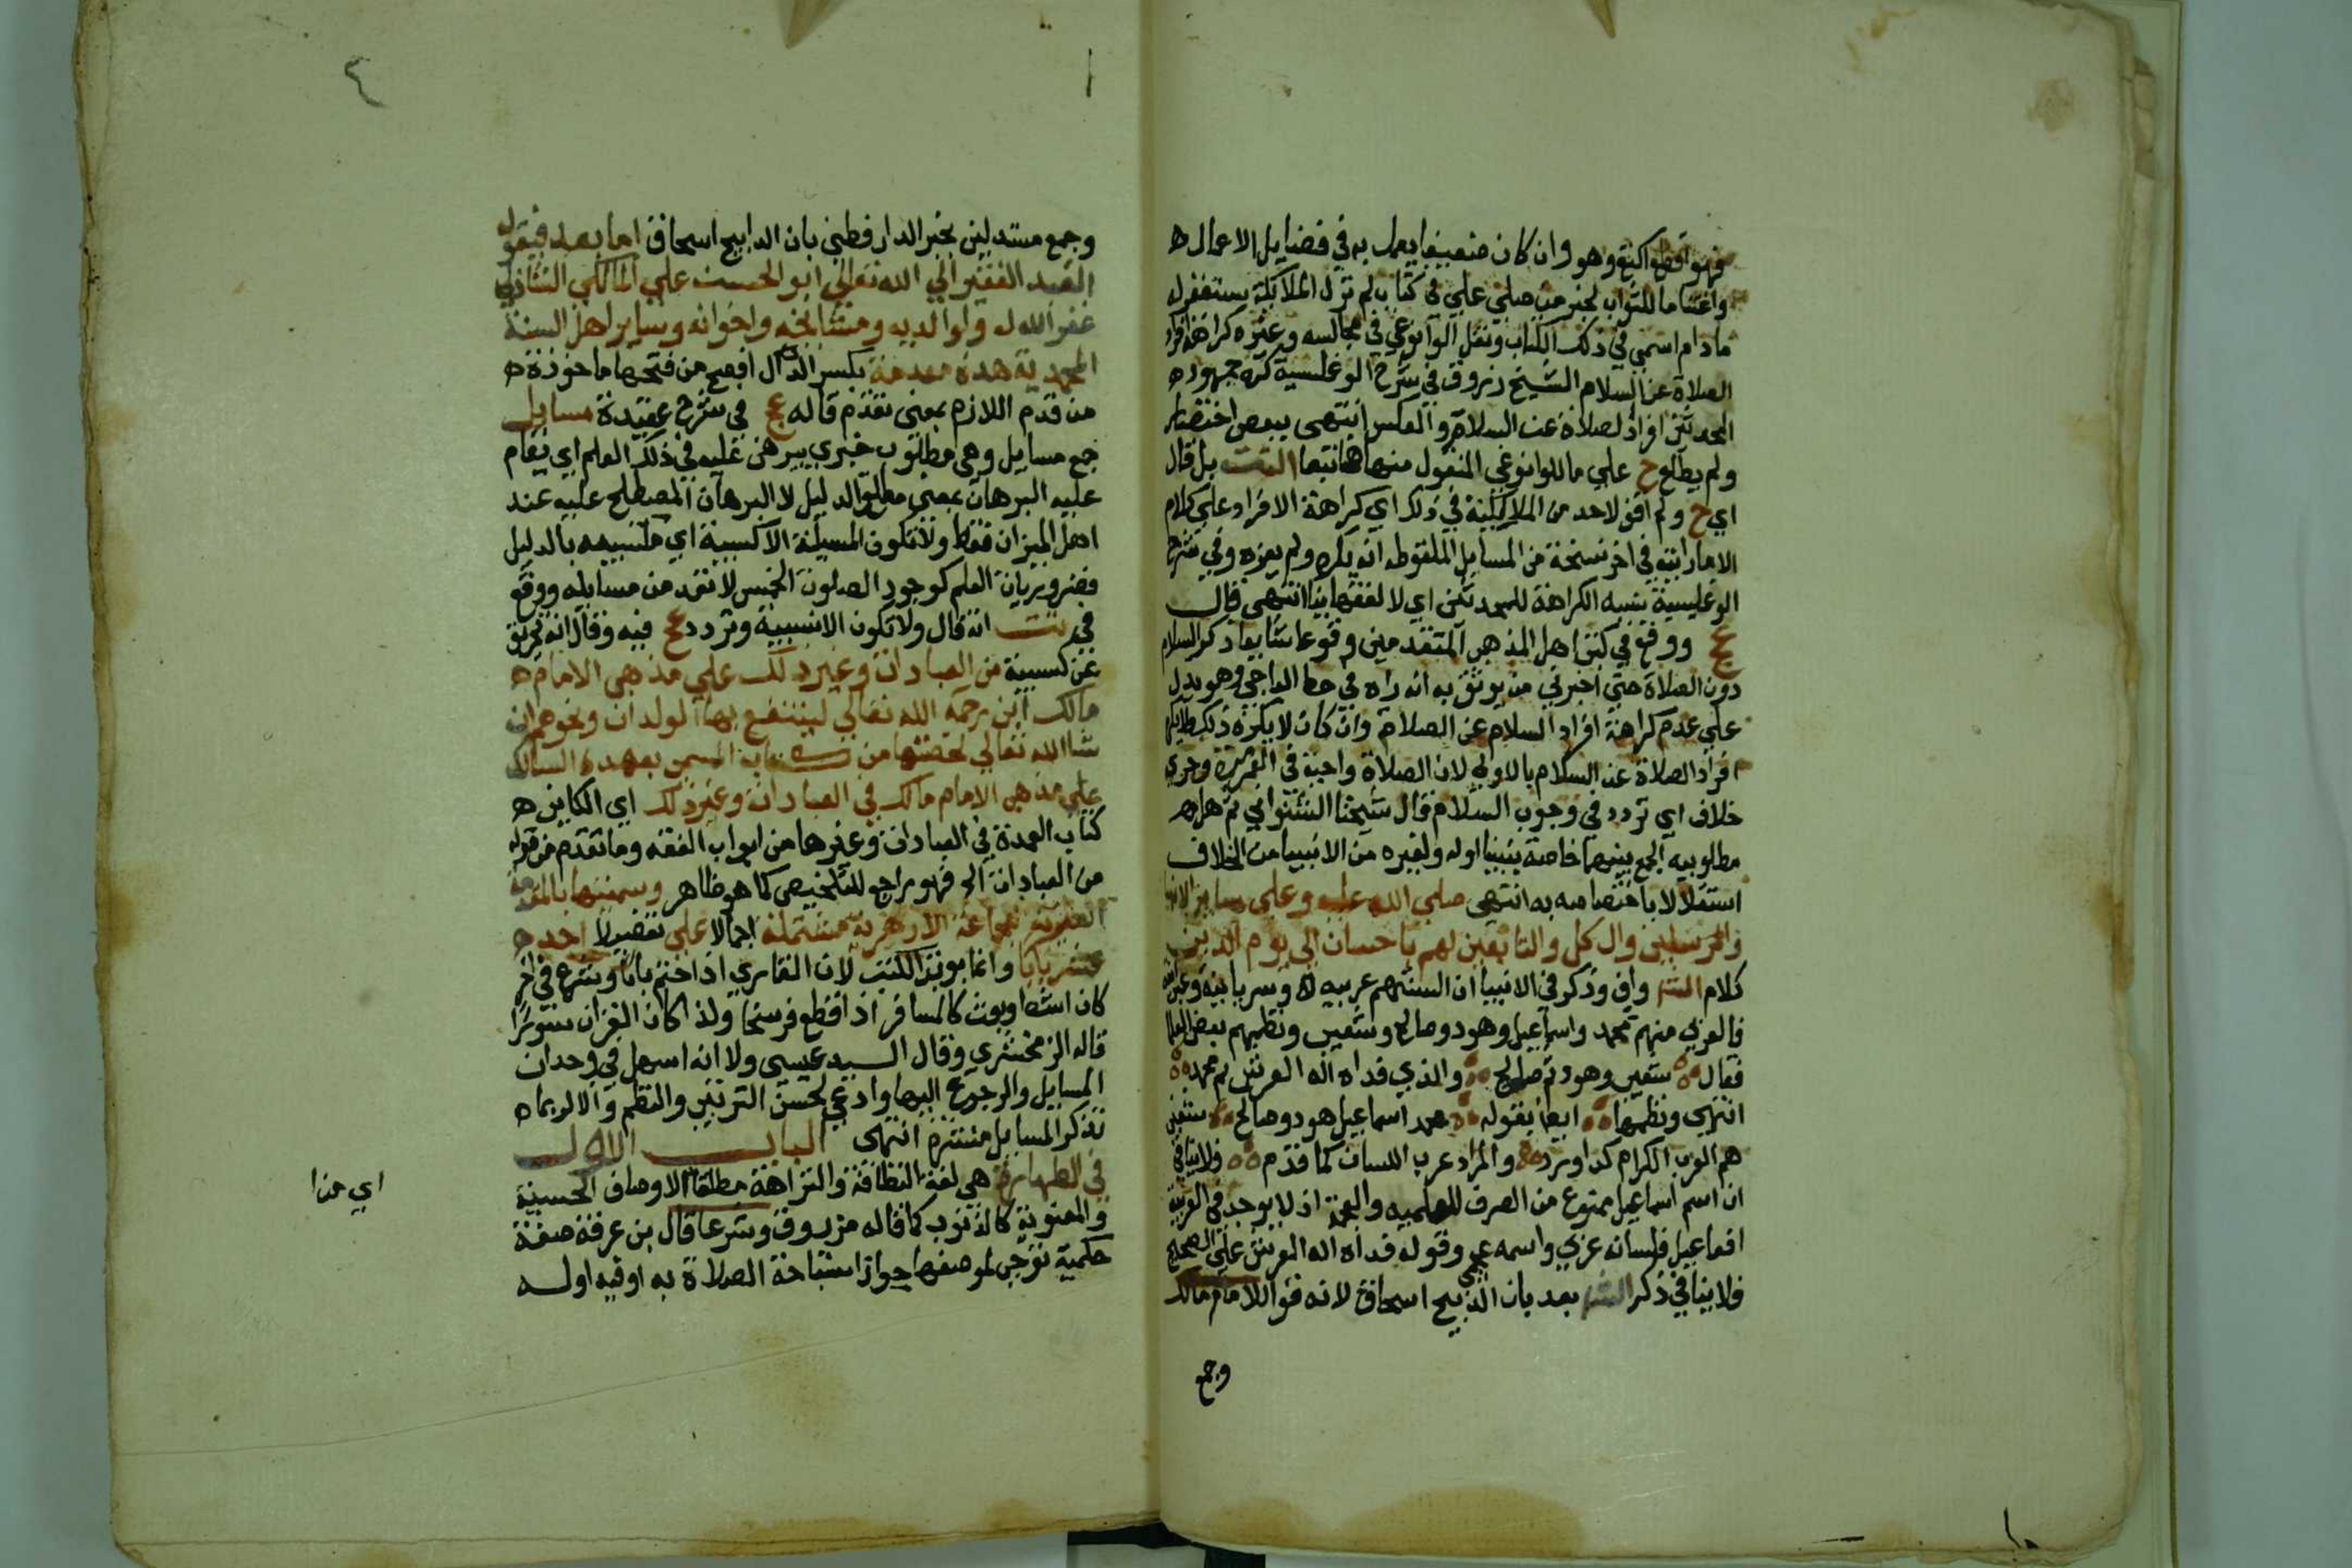 فهو اقطع اكتع وهو وان كان ضعيفا يعمل به في فضايل الاعمال ه
واغتناما للثواب لخبر من صلي علي في كتاب لم تزل الملائكة يستغفر له
مادام اسمي في ذلك الكتاب ونقل الوانوغي في مجالسه وغيره كراهة افراد
الصلاة عن السلام الشيخ زروق في شرح الوغليسية كره جمهور ه
المحدثين افراد الصلاة عن السلام والعكس انتهى ببعض اختصار
ولم يطلع ح علي ما للوانوغي المنقول منها هنا تبعا التت بل قال
اي ح ولم اقف لاحد من المالكية في ذلك اي كراهة الافراد علي كلام
الا ما رايته في اخر نسخة من المسايل الملقوطه انه يكره ولم يعزه وفي شرح
الوغليسية ينسبه الكراهة للمحدثين اي لا لفقهاينا انتهي قال
عج ووقع في كتب اهل المذهب المتقدمين وقوعا شايعا ذكر السلام
دون الصلاة حتي اخبرني من يوثق به انه راه في خط الواجي وهو يدل
علي عدم كراهة افراد السلام عن الصلاة وان كان لا يكره ذلك
افراد الصلاة عن السلام بالاولي لان الصلاة واجبة في العمر مرة وجري
خلاف اي تردد في وجوب السلام قال شيخنا الشنواني ثم هل ه
مطلوبيه الجمع بينهما خاصة بنبينا او له ولغيره من الانبيا من الخلاف
استقلالا باختصاصه به انتهي صلي الله عليه وعلي ساير الانبيا
والمرسلين وال كل والتابعين لهم باحسان الي يوم الدين
كلام الش واف وذكر في الانبيا ان السنتهم عربيه وسريانية
فالعربي منهم محمد واسماعيل وهود وصالح وشعيب ونظمهم بعض
فقال شعيب وهود ثم صالح والذي فداه اله العرش ثم محمد
انتهي ونظمها ايضا بقوله محمد اسماعيل هود وصالح شعيب
هم العرب الكرام كذا ورد والمراد عرب اللسان كما قدم ولا ينافي
ان اسم اسماعيل ممنوع من الصرف للعلميه والعجمة اذ لا يوجد في العربية
افعاعيل فلسانه عربي واسمه عجمي وقوله فداه اله العرش علي الصحيح
فلا ينافي ذكر الش بعد بان الذبيح اسحاق لانه قول للامام مالك
وجمع
٤
١
وجمع مستدلين بخبر الدارقطني بان الذابيح اسحاق اما بعد فيقول
العبد الفقير الي الله تعالي ابو الحسن علي المالكي الشاذلي
غفر الله له ولوالديه ومشايخه واخوانه وساير اهل السنة
المحمدية هذه مقدمة بكسر الدال افصح من فتحها ماخوذة ه
من قدم اللازم بمعني تقدم قاله عج في شرح عقيدة مسايل
جمع مسايل وهي مطلوب خبري يبرهن عليه في ذلك العلم اي يقام
عليه البرهان بمعني مطلق الدليل لا البرهان المصطلح عليه عند
اهل الميزان فقط ولا تكون المسيلة الا كسبية اي مكتسبه بالدليل
فضروريات العلم كوجوب الصلوات الخمس لا تعد من مسايله ووقع
في تت انه قال ولا تكون الا نسبية وتردد عج فيه وقال انه تحريف
عن كسبية من العبادات وغير ذلك علي مذهب الامام ه
مالك ابن رحمة الله تعالي لينتفع بها الولدان ونحوهم ان
شا الله تعالي لخصتها من كتاب المسمي بعمدة السالك
علي مذهب الامام مالك في العبادات وغير ذلك اي الكاين ه
كتاب العمدة في العبادات وغيرها من ابواب الفقه وما تقدم من قوله
من العبادات الخ فهو راجع للتلخيص كما هو ظاهر وسميتها بالمقدمة
العزية للجماعة الازهرية مشتملة اجمالا علي تفصيلا احد ه
عشر بابا وانما بوبت الكتب لان القاري اذا ختم بابا وشرع في اخر
كان انشط وبعث كالمسافر اذا قطع فرسخا ولذا كان القران سورا
قاله الزمخشري وقال السيد عيسي ولا انه اسهل في وجدان
المسايل والرجوع اليها وادعي لحسن الترتيب والنظم والا لربما ه
تذكر المسايل منتشرة انتهي الباب الاول
في الطهارة هي لغة النظافة والنزاهة مطلقا الاوصاف الحسية
والمعنوية كالذنوب كما قاله مرزوق وشرعا قال بن عرفة صفة
حكمية توجب لموصفها جواز استباحة الصلاة به او فيه او له
اي من ا